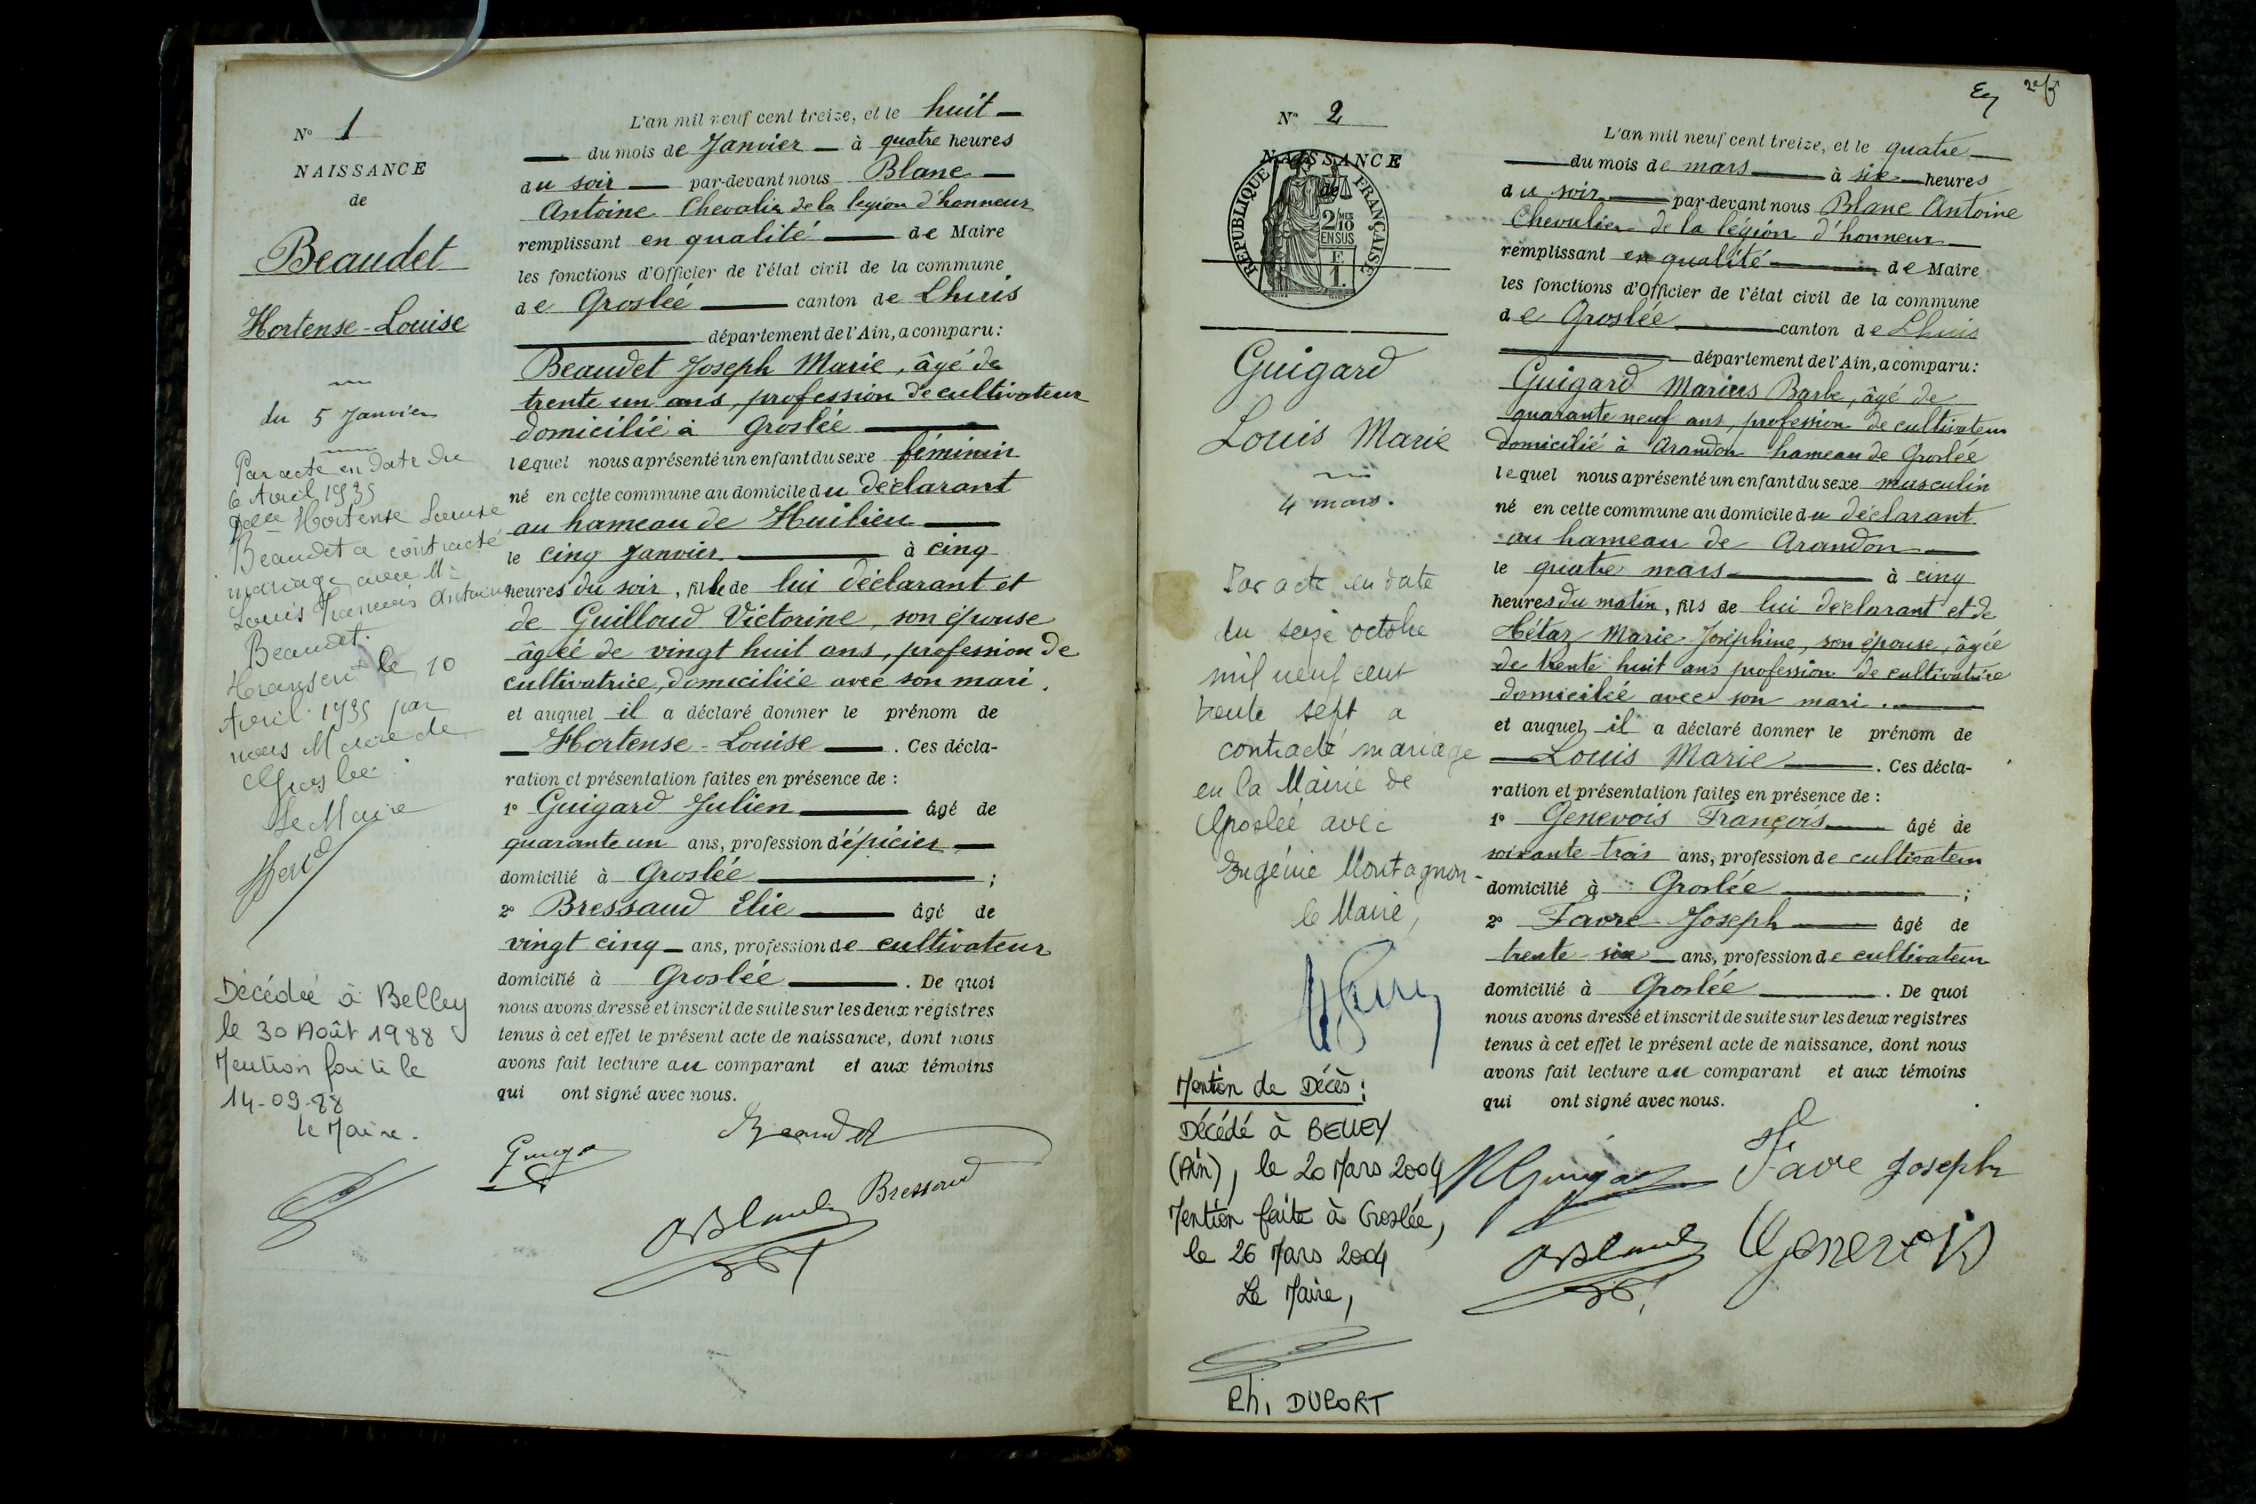 N° 1
NAISSANCE
de
Beaudet
Hortense-Louise
du 5 Janvier
Par acte en date du
6 Avril 1935
Delle Hortense Louise
Beaudet a contracté
mariage avec Mr
Louis François Antoine
Beaudet.
Transcrit le 10
Avril 1935 par
nous Maire de
Groslée.
Le Maire
Décédée à Belley
le 30 Août 1988
Mention faite le
14-09-88
le Maire.
L'an mil neuf cent treize, et le huit
du mois de Janvier à quatre heures
du soir par-devant nous Blanc
Antoine Chevalier de la légion d'honneur
remplissant en qualité de Maire
les fonctions d'Officier de l'état civil de la commune
de Groslée canton de Lhuis
département de l'Ain, a comparu:
Beaudet Joseph Marie, âgé de
trente un ans, profession de cultivateur
domicilié à Groslée
lequel nous a présenté un enfant du sexe féminin
né en cette commune au domicile du déclarant
au hameau de Huilieu
le cinq Janvier à cinq
heures du soir, fille de lui déclarant et
de Guilloud Victorine, son épouse
âgée de vingt huit ans, profession de
cultivatrice, domiciliée avec son mari.
et auquel il a déclaré donner le prénom de
Hortense-Louise. Ces décla-
ration et présentation faites en présence de :
1° Guigard Julien âgé de
quarante un ans, profession d'épicier
domicilié à Groslée ;
2° Bressaud Elie âgé de
vingt cinq ans, profession de cultivateur
domicilié à Groslée. De quoi
nous avons dressé et inscrit de suite sur les deux registres
tenus à cet effet le présent acte de naissance, dont nous
avons fait lecture au comparant et aux témoins
qui ont signé avec nous.
Beaudet
Bressaud
ABlanc
N° 2
NAISSANCE
de
RÉPUBLIQUE FRANÇAISE
2/10 MES
EN SUS
F.
1.
Guigard
Louis Marie
4 mars.
Par acte en date
du seize octobre
mil neuf cent
trente sept a
contracté mariage
en la Mairie de
Groslée avec
Eugénie Montagnon-
le Maire,
Mention de Décès:
Décédé à BELLEY
(Ain), le 20 Mars 2004
Mention faite à Groslée,
le 26 Mars 2004
Le Maire,
Ph. DUPORT
L'an mil neuf cent treize, et le quatre
du mois de mars à six heures
du soir par-devant nous Blanc Antoine
Chevalier de la légion d'honneur
remplissant en qualité de Maire
les fonctions d'Officier de l'état civil de la commune
de Groslée canton de Lhuis
département de l'Ain, a comparu:
Guigard Marius Barbe, âgé de
quarante neuf ans, profession de cultivateur
domicilié à Arandon hameau de Groslée
lequel nous a présenté un enfant du sexe masculin
né en cette commune au domicile du déclarant
au hameau de Arandon
le quatre mars à cinq
heures du matin, fils de lui déclarant et de
Hétaz Marie Joséphine, son épouse, âgée
de trente huit ans profession de cultivatrice
domiciliée avec son mari.
et auquel il a déclaré donner le prénom de
Louis Marie. Ces décla-
ration et présentation faites en présence de :
1° Genevois François âgé de
soixante trois ans, profession de cultivateur
domicilié à Groslée ;
2° Favre Joseph âgé de
trente six ans, profession de cultivateur
domicilié à Groslée. De quoi
nous avons dressé et inscrit de suite sur les deux registres
tenus à cet effet le présent acte de naissance, dont nous
avons fait lecture au comparant et aux témoins
qui ont signé avec nous.
Favre Joseph
ABlanc
Genevois